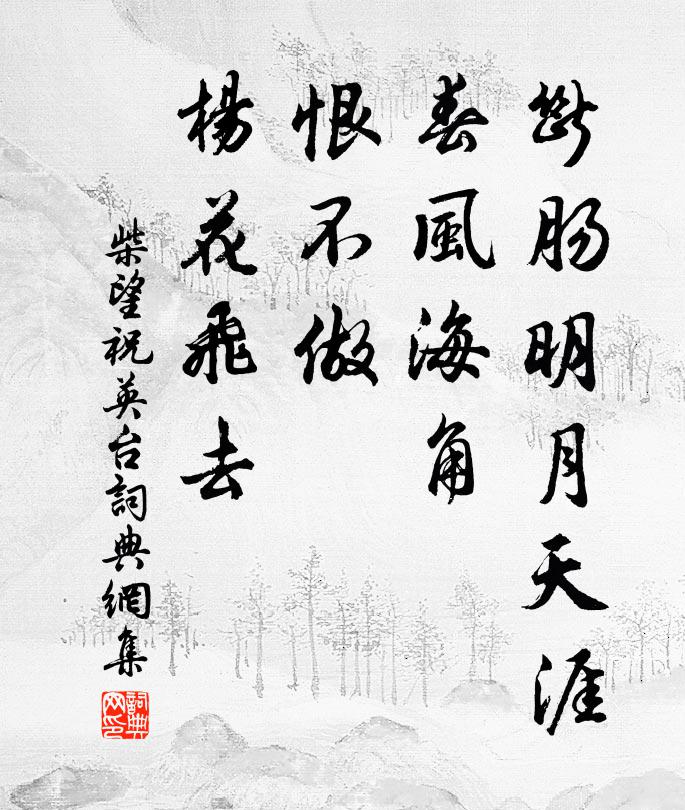 斷腸明月天涯
春風海角
恨不做
楊花飛去
柴望祝英台詞典網集
詞典网印